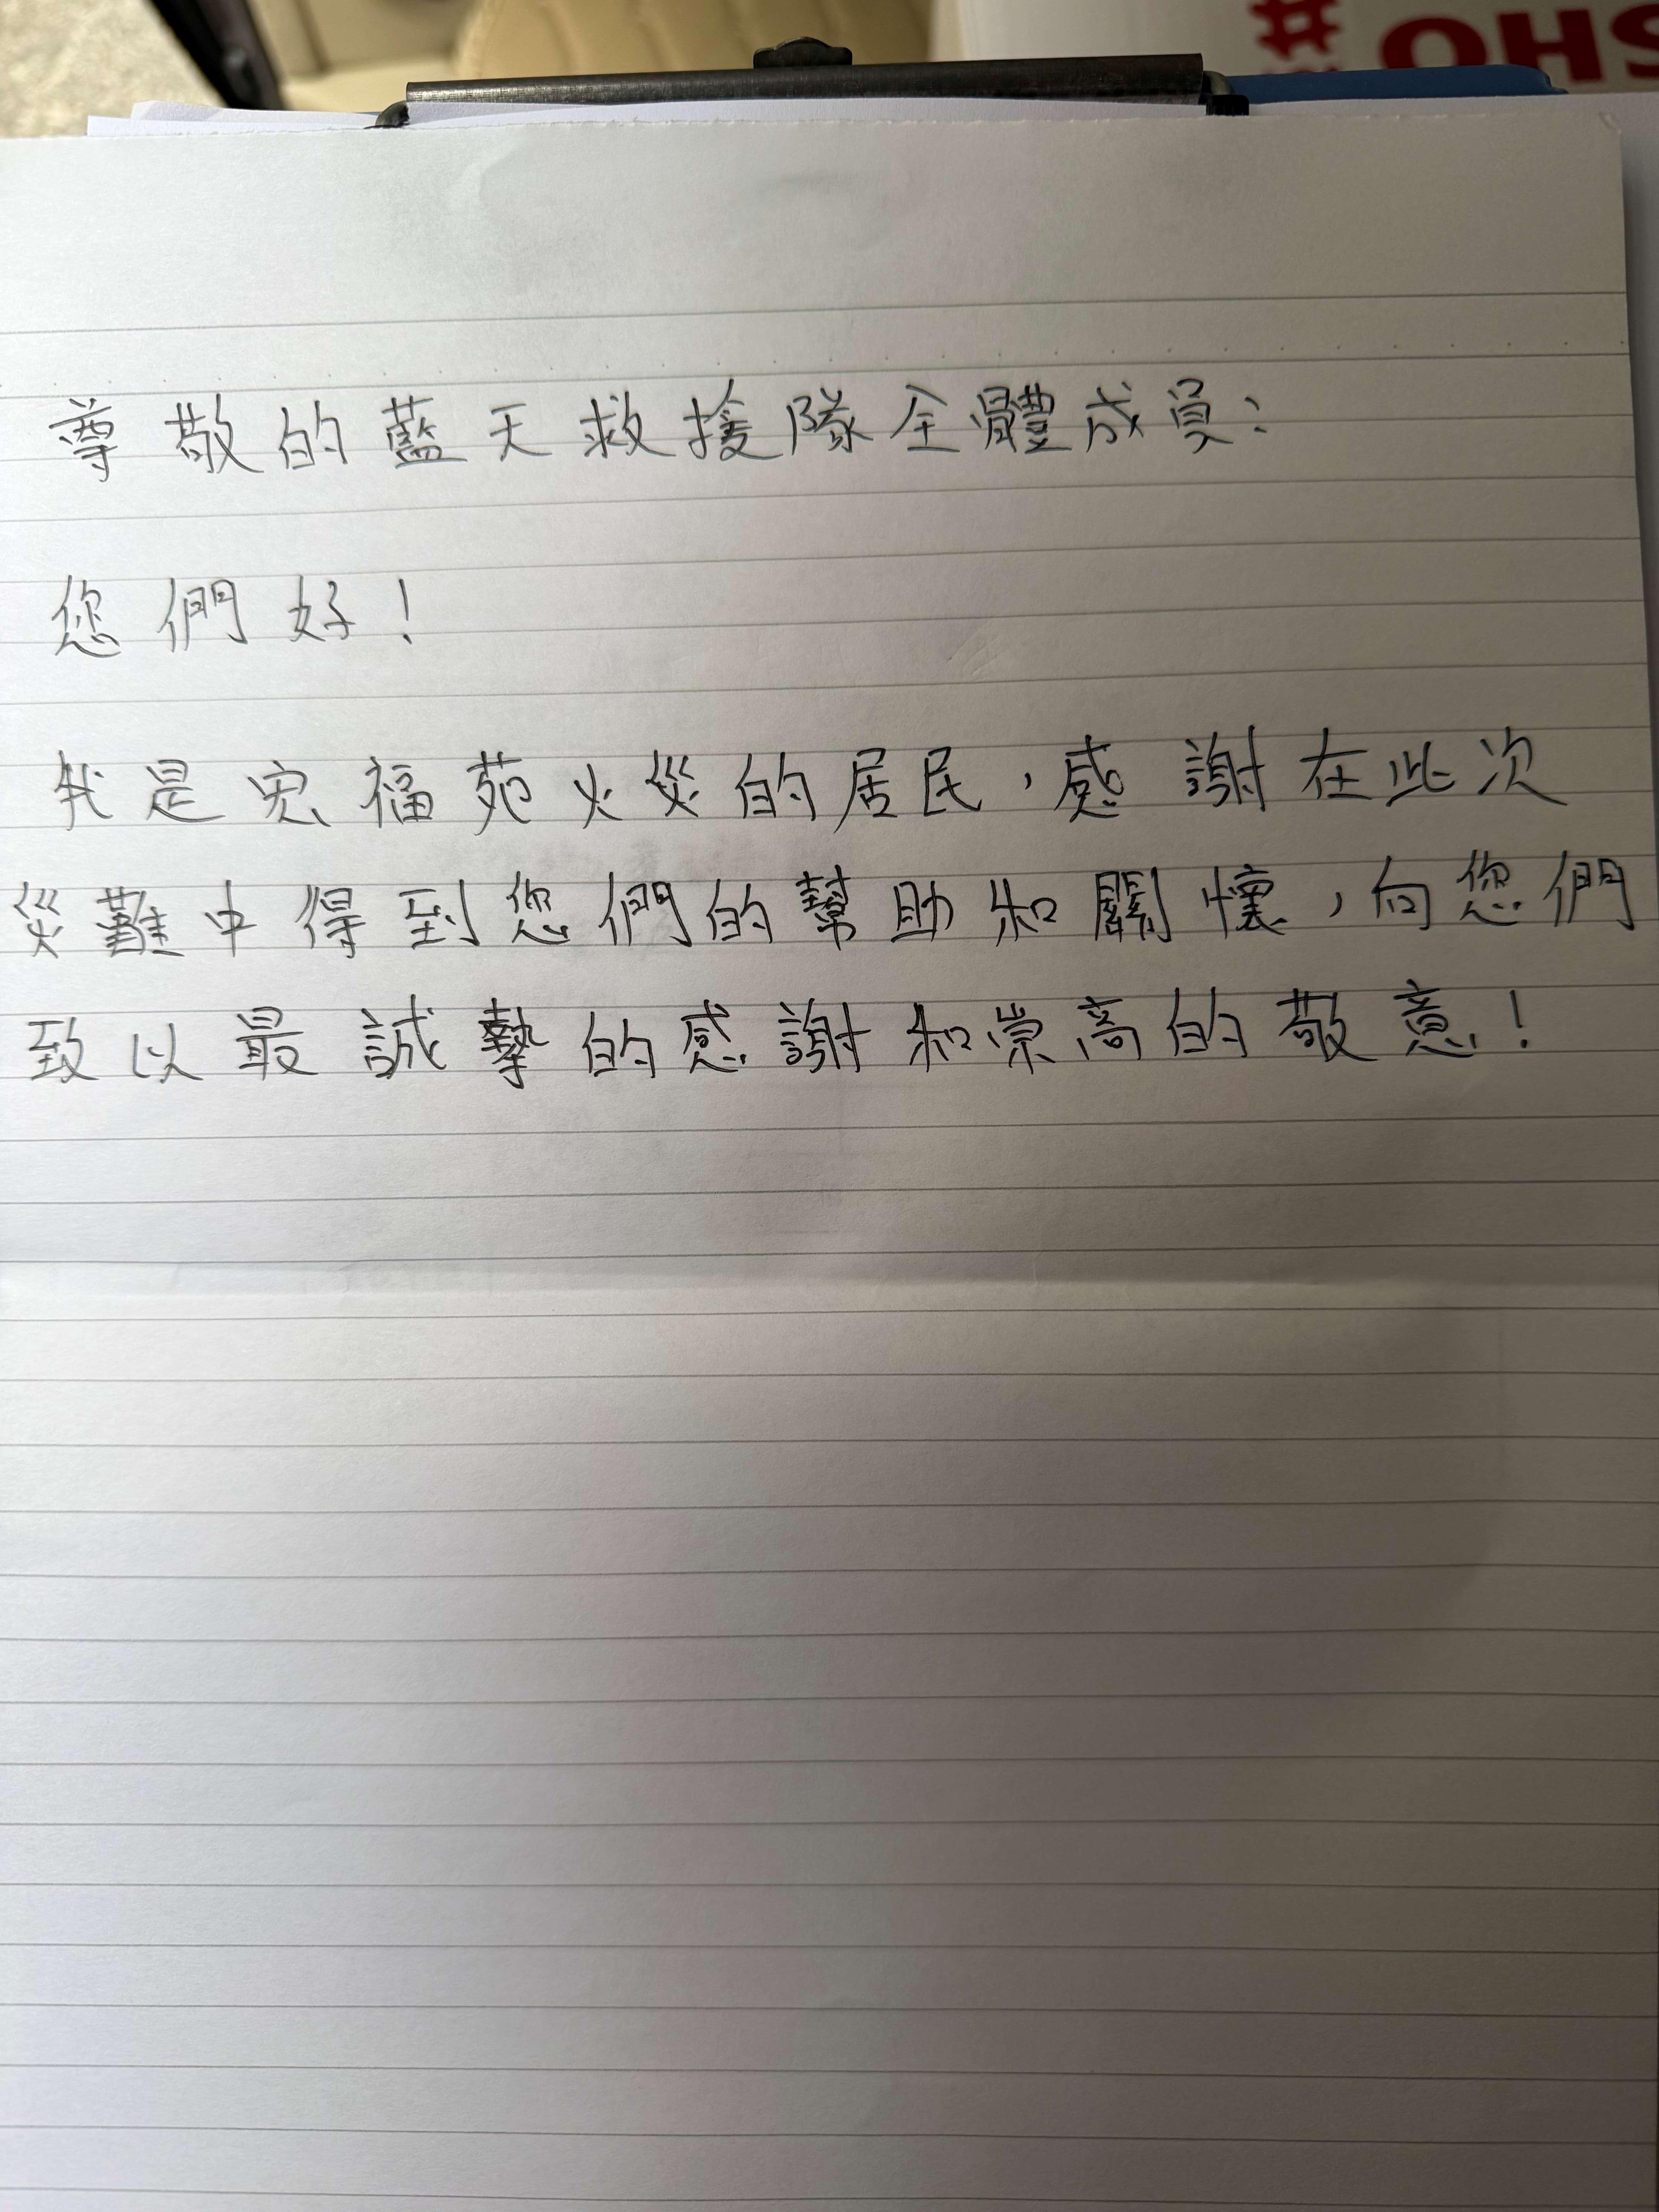 #OHS
尊敬的藍天救援隊全體成員：
您們好！
我是宏福苑火災的居民，感謝在此次
災難中得到您們的幫助和關懷，向您們
致以最誠摯的感謝和崇高的敬意！